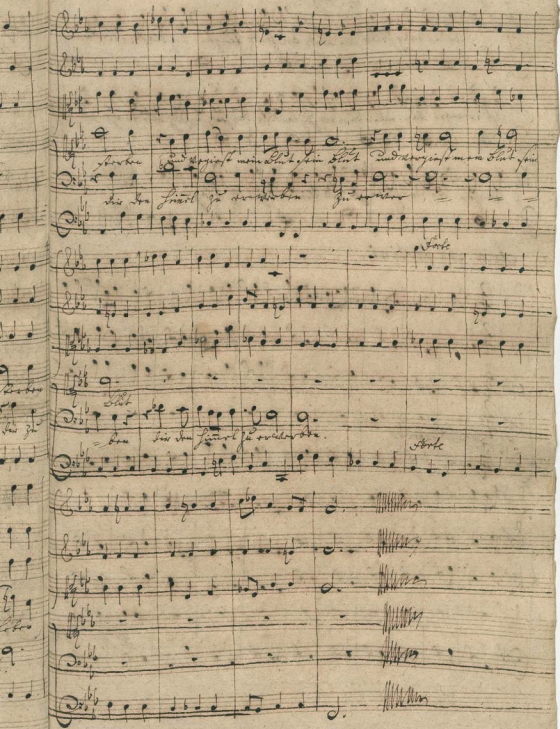 sterben und vergießt mein Blut sein Blut und vergießt mein Blut sein
dir den Himmel zu erwerben Zu erwer
Forte
Blut
ben dir den Himmel zu erwerben.
Forte